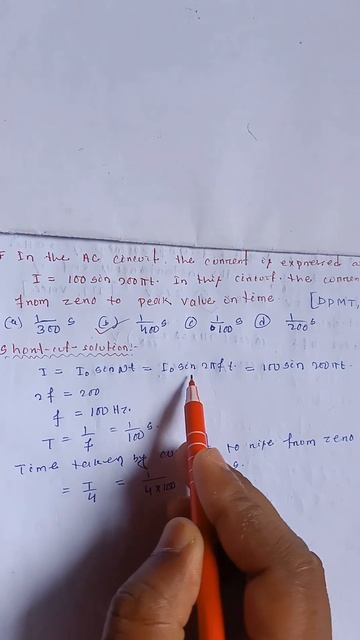 In the AC circuit the current is expressed a
I = 100 sin 200πt. In this circuit the curren
from zero to peak value in time. [DPMT,
(a) 1/300 s (b) 1/400 s (c) 1/100 s (d) 1/200 s
Short-cut solution:-
I = I₀ sin ωt = I₀ sin 2πft = 100 sin 200πt
2f = 200
f = 100 Hz.
T = 1/f = 1/100 s.
Time taken by to rise from zero
= T/4 = 1/4×100 s.